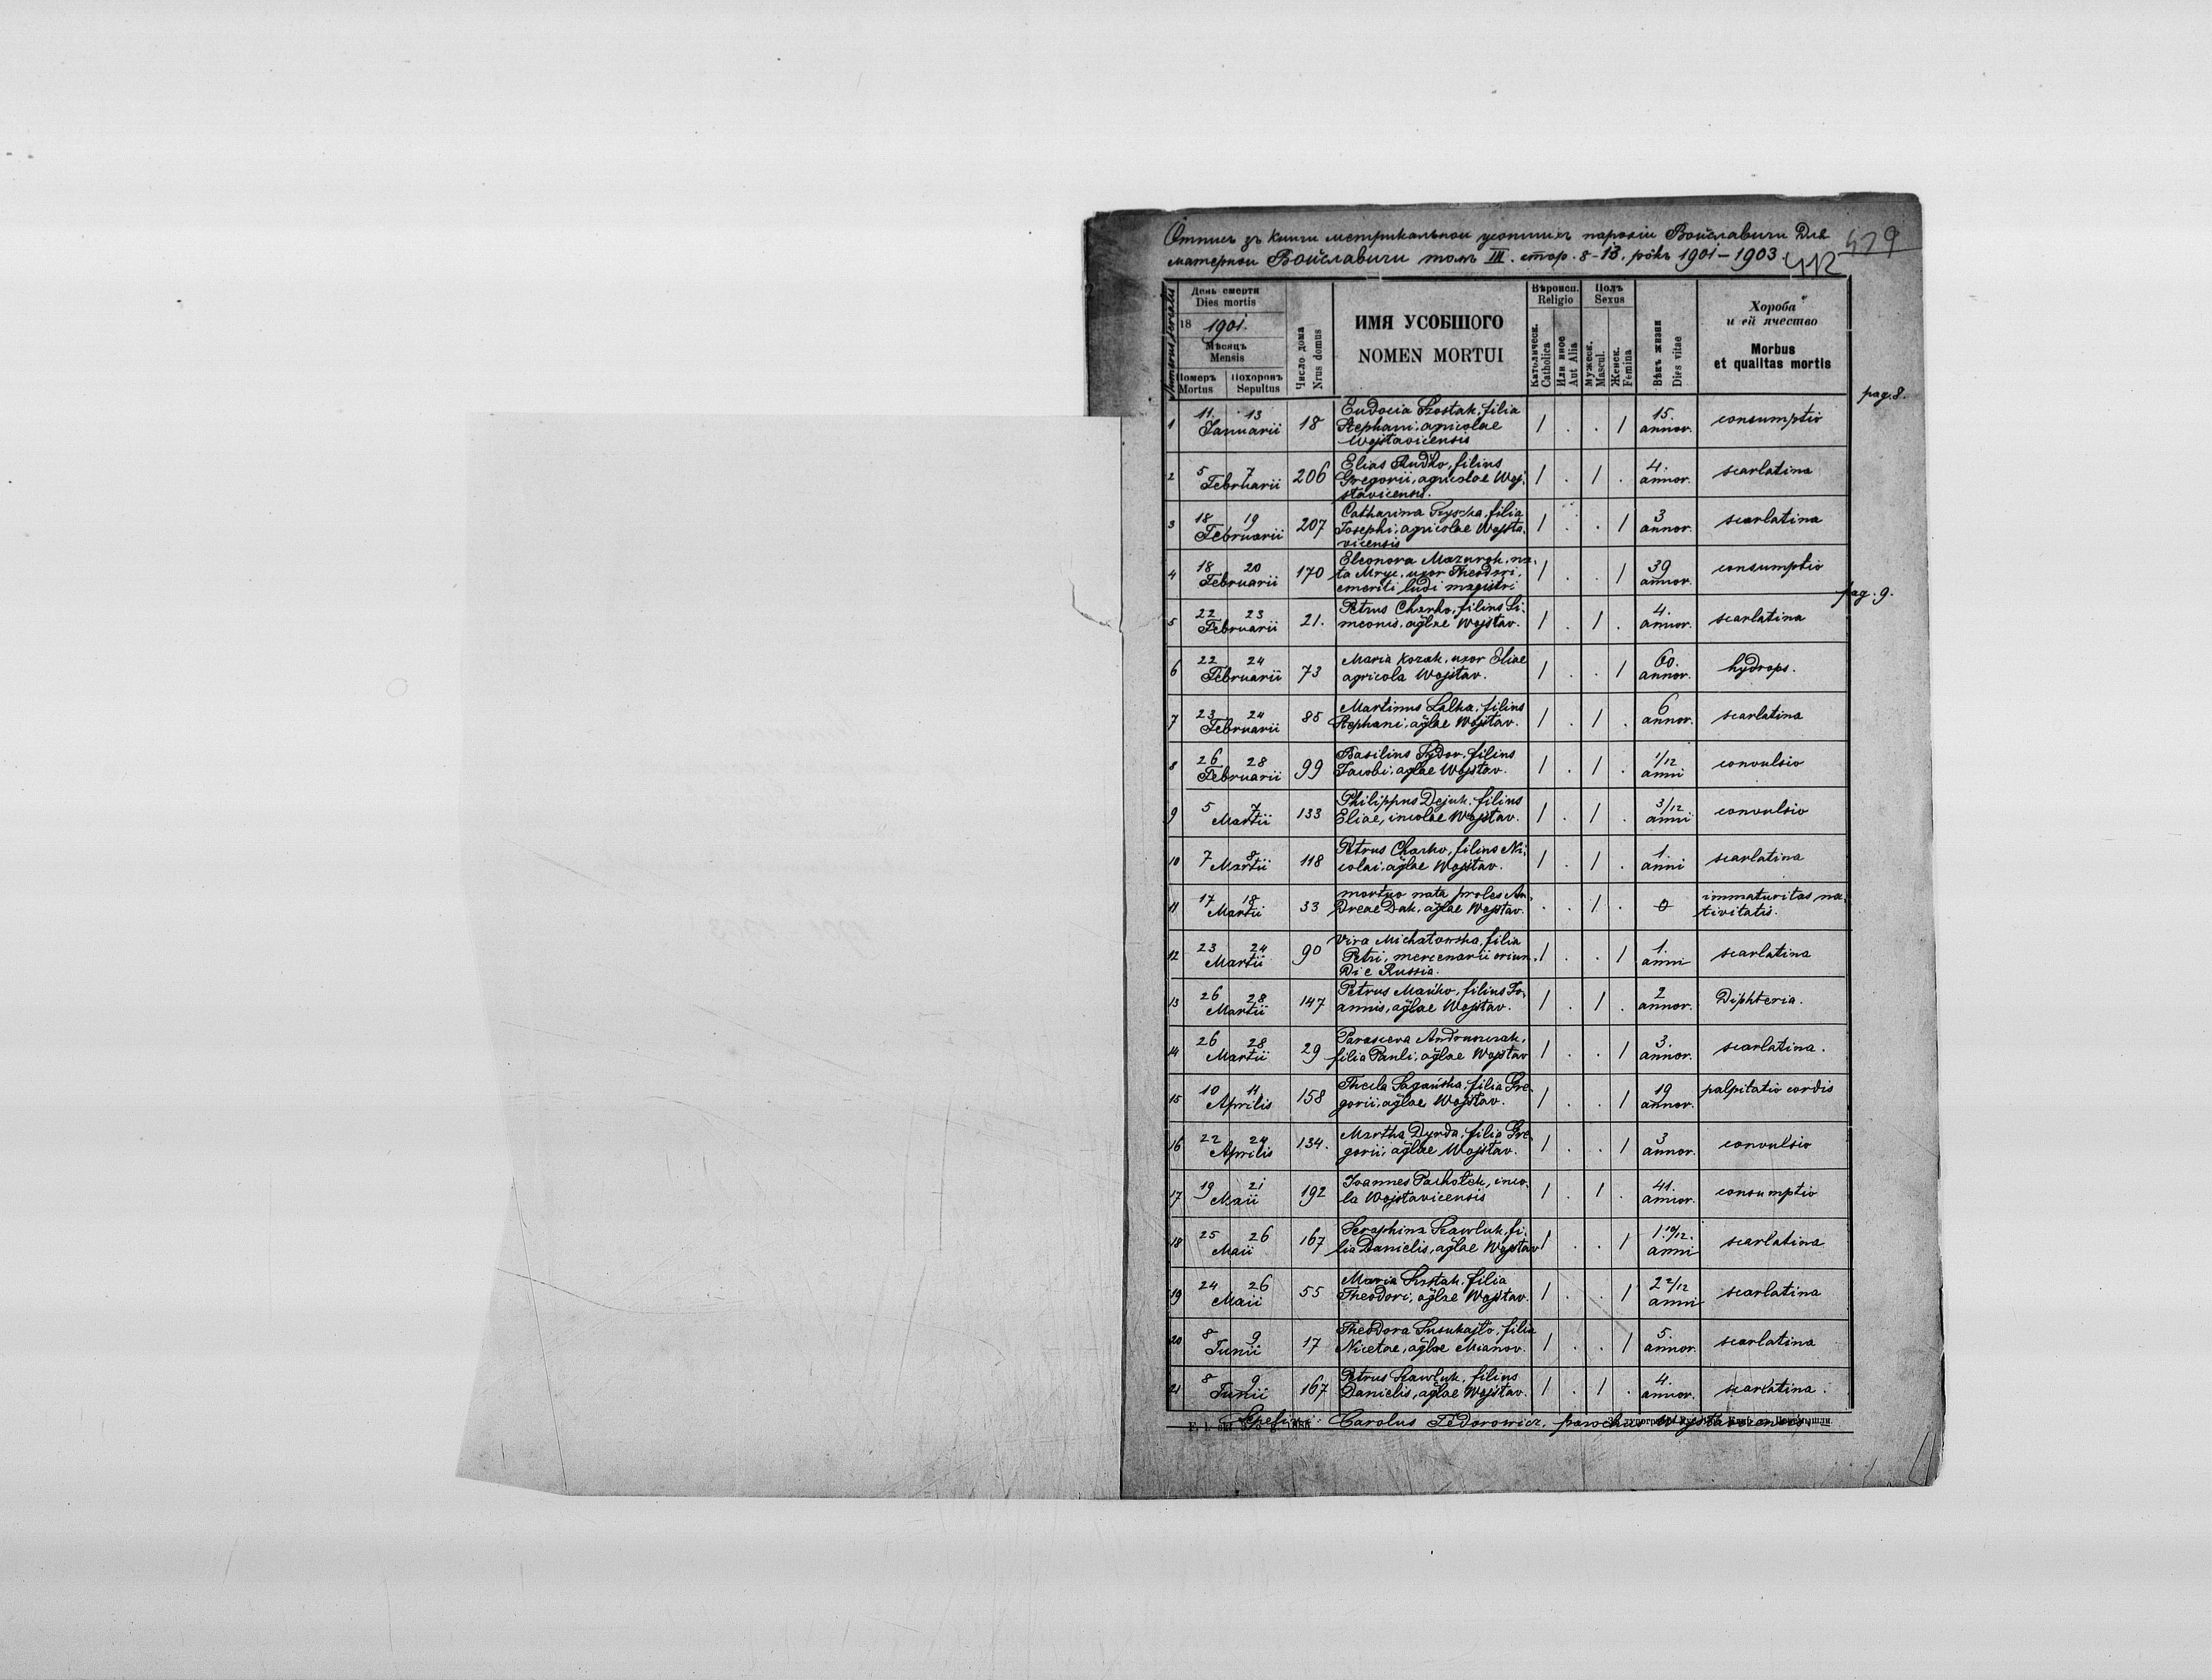 Отпись зъ книги метрикальнои усопшихъ парохіи Войславичи для
матернои Войславичи томъ III. стор. 8-13. рôкъ 1901-1903
419
412
Numerus serialis
День смерти
Dies mortis
18 1901.
Мѣсяць
Mensis
Номеръ
Mortus
Похоронъ
Sepultus
Число дома
Nrus domus
ИМЯ УСОБШОГО
NOMEN MORTUI
Вѣроисп.
Religio
Католическ.
Catholica
Или иное
Aut Alia
Полъ
Sexus
Мужеск.
Mascul.
Женск.
Femina
Вѣкъ жизни
Dies vitae
Хороба
и ей ячество
Morbus
et qualitas mortis
pag. 8.
1 11. 13 Januarii 18 Eudocia Szostak, filia
Stephani, agricolae
Wojsławicensis / . . / 15. annor. consumptio
2 5 7 Februarii 206 Elias Rudko, filius
Gregorii, agricolae Woj-
sławicensis. / . / . 4. annor. scarlatina
3 18 19 Februarii 207 Catharina filia
Josephi, agricolae Wojsła-
vicensis / . . / 3 annor. scarlatina
4 18 20 Februarii 170 Eleonora Mazurok, na-
ta Mryc, uxor Theodori,
emeriti ludi magistri / . . / 39 annor. consumptio
pag. 9.
5 22 23 Februarii 21. Petrus Charko, filius Si-
meonis, aglae Wojsław. / . / . 4. annor. scarlatina
6 22 24 Februarii 73 Maria Kozak, uxor Eliae
agricola Wojsław. / . . / 60. annor. hydrops.
7 23 24 Februarii 85 Martinus Lalka, filius
Stephani, aglae Wojsław. / . / . 6 annor. scarlatina
8 26 28 Februarii 99 Basilius Sydor, filius
Jacobi, aglae Wojsław. / . / . 1/12 anni convulsio
9 5 7 Martii 133 Philippus Dejuk, filius
Eliae, incolae Wojsław. / . / . 3/12 anni convulsio
10 7 8 Martii 118 Petrus Charko, filius Ni-
colai, aglae Wojsław. / . / . 1. anni scarlatina
11 17 18 Martii 33 mortuo nata proles An-
dreae Dak, aglae Wojsław. . . / . 0 immaturitas na-
tivitatis.
12 23 24 Martii 90 Vira Michałowska, filia
Petri, mercenarii oriun-
di e Russia. / . . / 1. anni scarlatina
13 26 28 Martii 147 Petrus Mańko, filius Jo-
annis, aglae Wojsław. / . / . 2 annor. Diphteria.
14 26 28 Martii 29 Parasceva Andruszczak,
filia Pauli, aglae Wojsław / . . / 3. annor. scarlatina.
15 10 11 Aprilis 158 Thecla Sagańska, filia Gre-
gorii, aglae Wojsław. / . . / 19 annor. palpitatio cordis
16 22 24 Aprilis 134. Martha Dyrda, filia Gre-
gorii, aglae Wojsław. / . . / 3 annor. convulsio
17 19 21 Maii 192 Joannes Pachołek, inco-
la Wojsławicensis / . / . 41. annor. consumptio
18 25 26 Maii 167 Seraphina Sawluk, fi-
lia Danielis, aglae Wojsław / . . / 1 10/12. anni scarlatina
19 24 26 Maii 55 Maria Szostak, filia
Theodori, aglae Wojsław. / . . / 2 2/12 anni scarlatina
20 8 9 Junii 17 Theodora filia
Nicetae, aglae Mianov. / . . / 5. annor. scarlatina
21 8 9 Junii 167 Petrus Sawluk, filius
Danielis, aglae Wojsław. / . / . 4. annor. scarlatina.
Carolus Fedorowicz, parochus Wojsławicensis